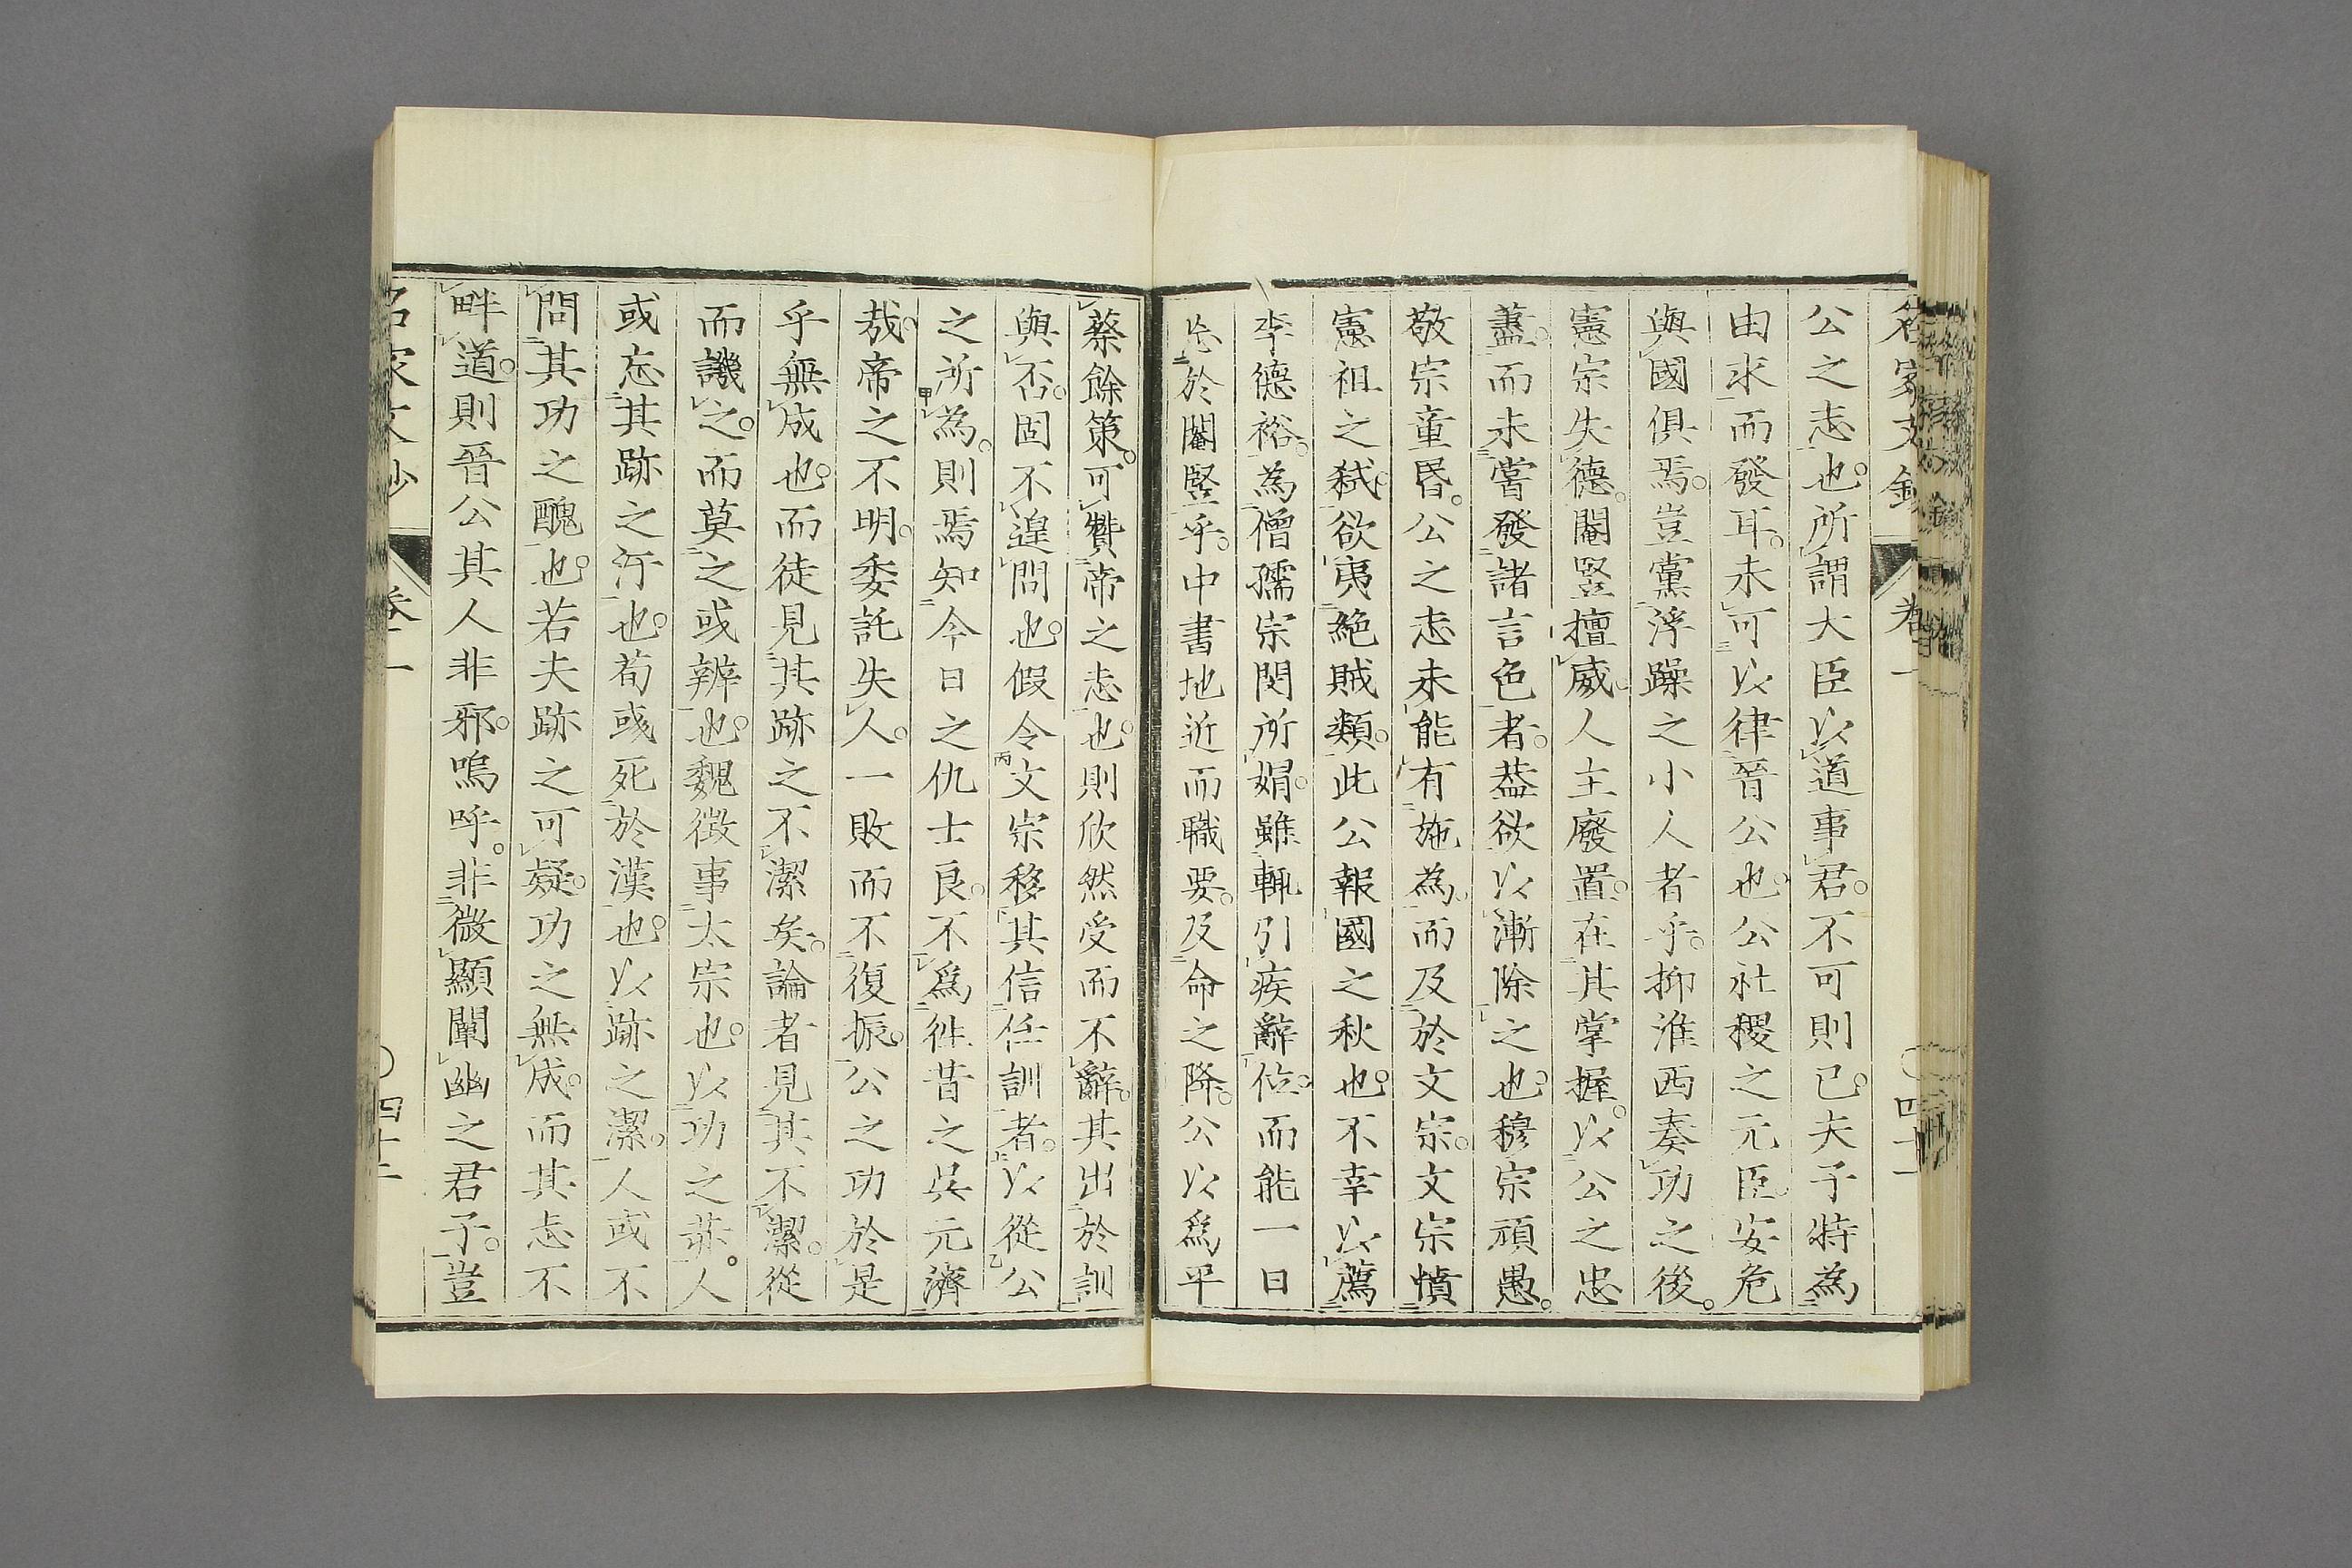 名家文鈔 卷一 四十一
公之志也。所謂大臣以道事君。不可則已。夫子特為
由求而發耳。未可以律晉公也。公社稷之元臣。安危
與國俱焉。豈黨浮躁之小人者乎。抑淮西奏功之後。
憲宗失德。閹豎擅威。人主廢置。在其掌握。以公之忠
藎。而未嘗發諸言色者。蓋欲以漸除之也。穆宗頑愚。
敬宗童昏。公之志未能有施為。而及於文宗。文宗憤
憲祖之弒。欲夷絶賊類。此公報國之秋也。不幸以薦
李德裕。為僧孺宗閔所娟。雖輒引疾辭位。而能一日
忘於閹豎乎。中書地近而職要。及命之降。公以為平
蔡餘策。可贊帝之志也。則欣然受而不辭。其出於訓
與否。固不遑問也。假令文宗移其信任訓者。以從公
之所為。則焉知今日之仇士良。不為徃昔之吳元濟
哉。帝之不明。委託失人。一敗而不復振。公之功於是
乎無成也。而徒見其跡之不潔矣。論者見其不潔。從
而譏之。而莫之或辨也。魏徴事太宗也。以功之莊。人
或忘其跡之汙也。荀彧死於漢也。以跡之潔。人或不
問其功之醜也。若夫跡之可疑。功之無成。而其志不
畔道。則晉公其人非邪。嗚呼。非微顯闡幽之君子。豈
名家文鈔 卷一 四十二